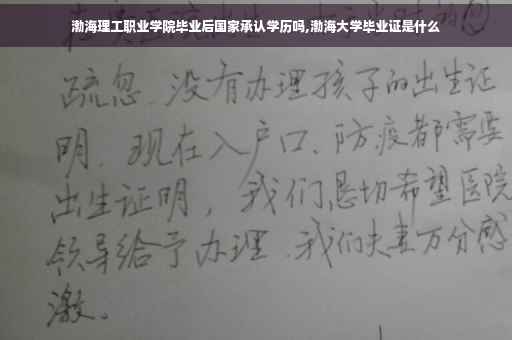 渤海理工职业学院毕业后国家承认学历吗,渤海大学毕业证是什么
疏忽.没有办理孩子的出生证
明.现在入户口、防疫都需要
出生证明，我们恳切希望医院
领导给予办理.我们夫妻万分感
激。